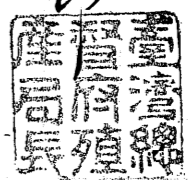 臺灣總
督府殖
產局長